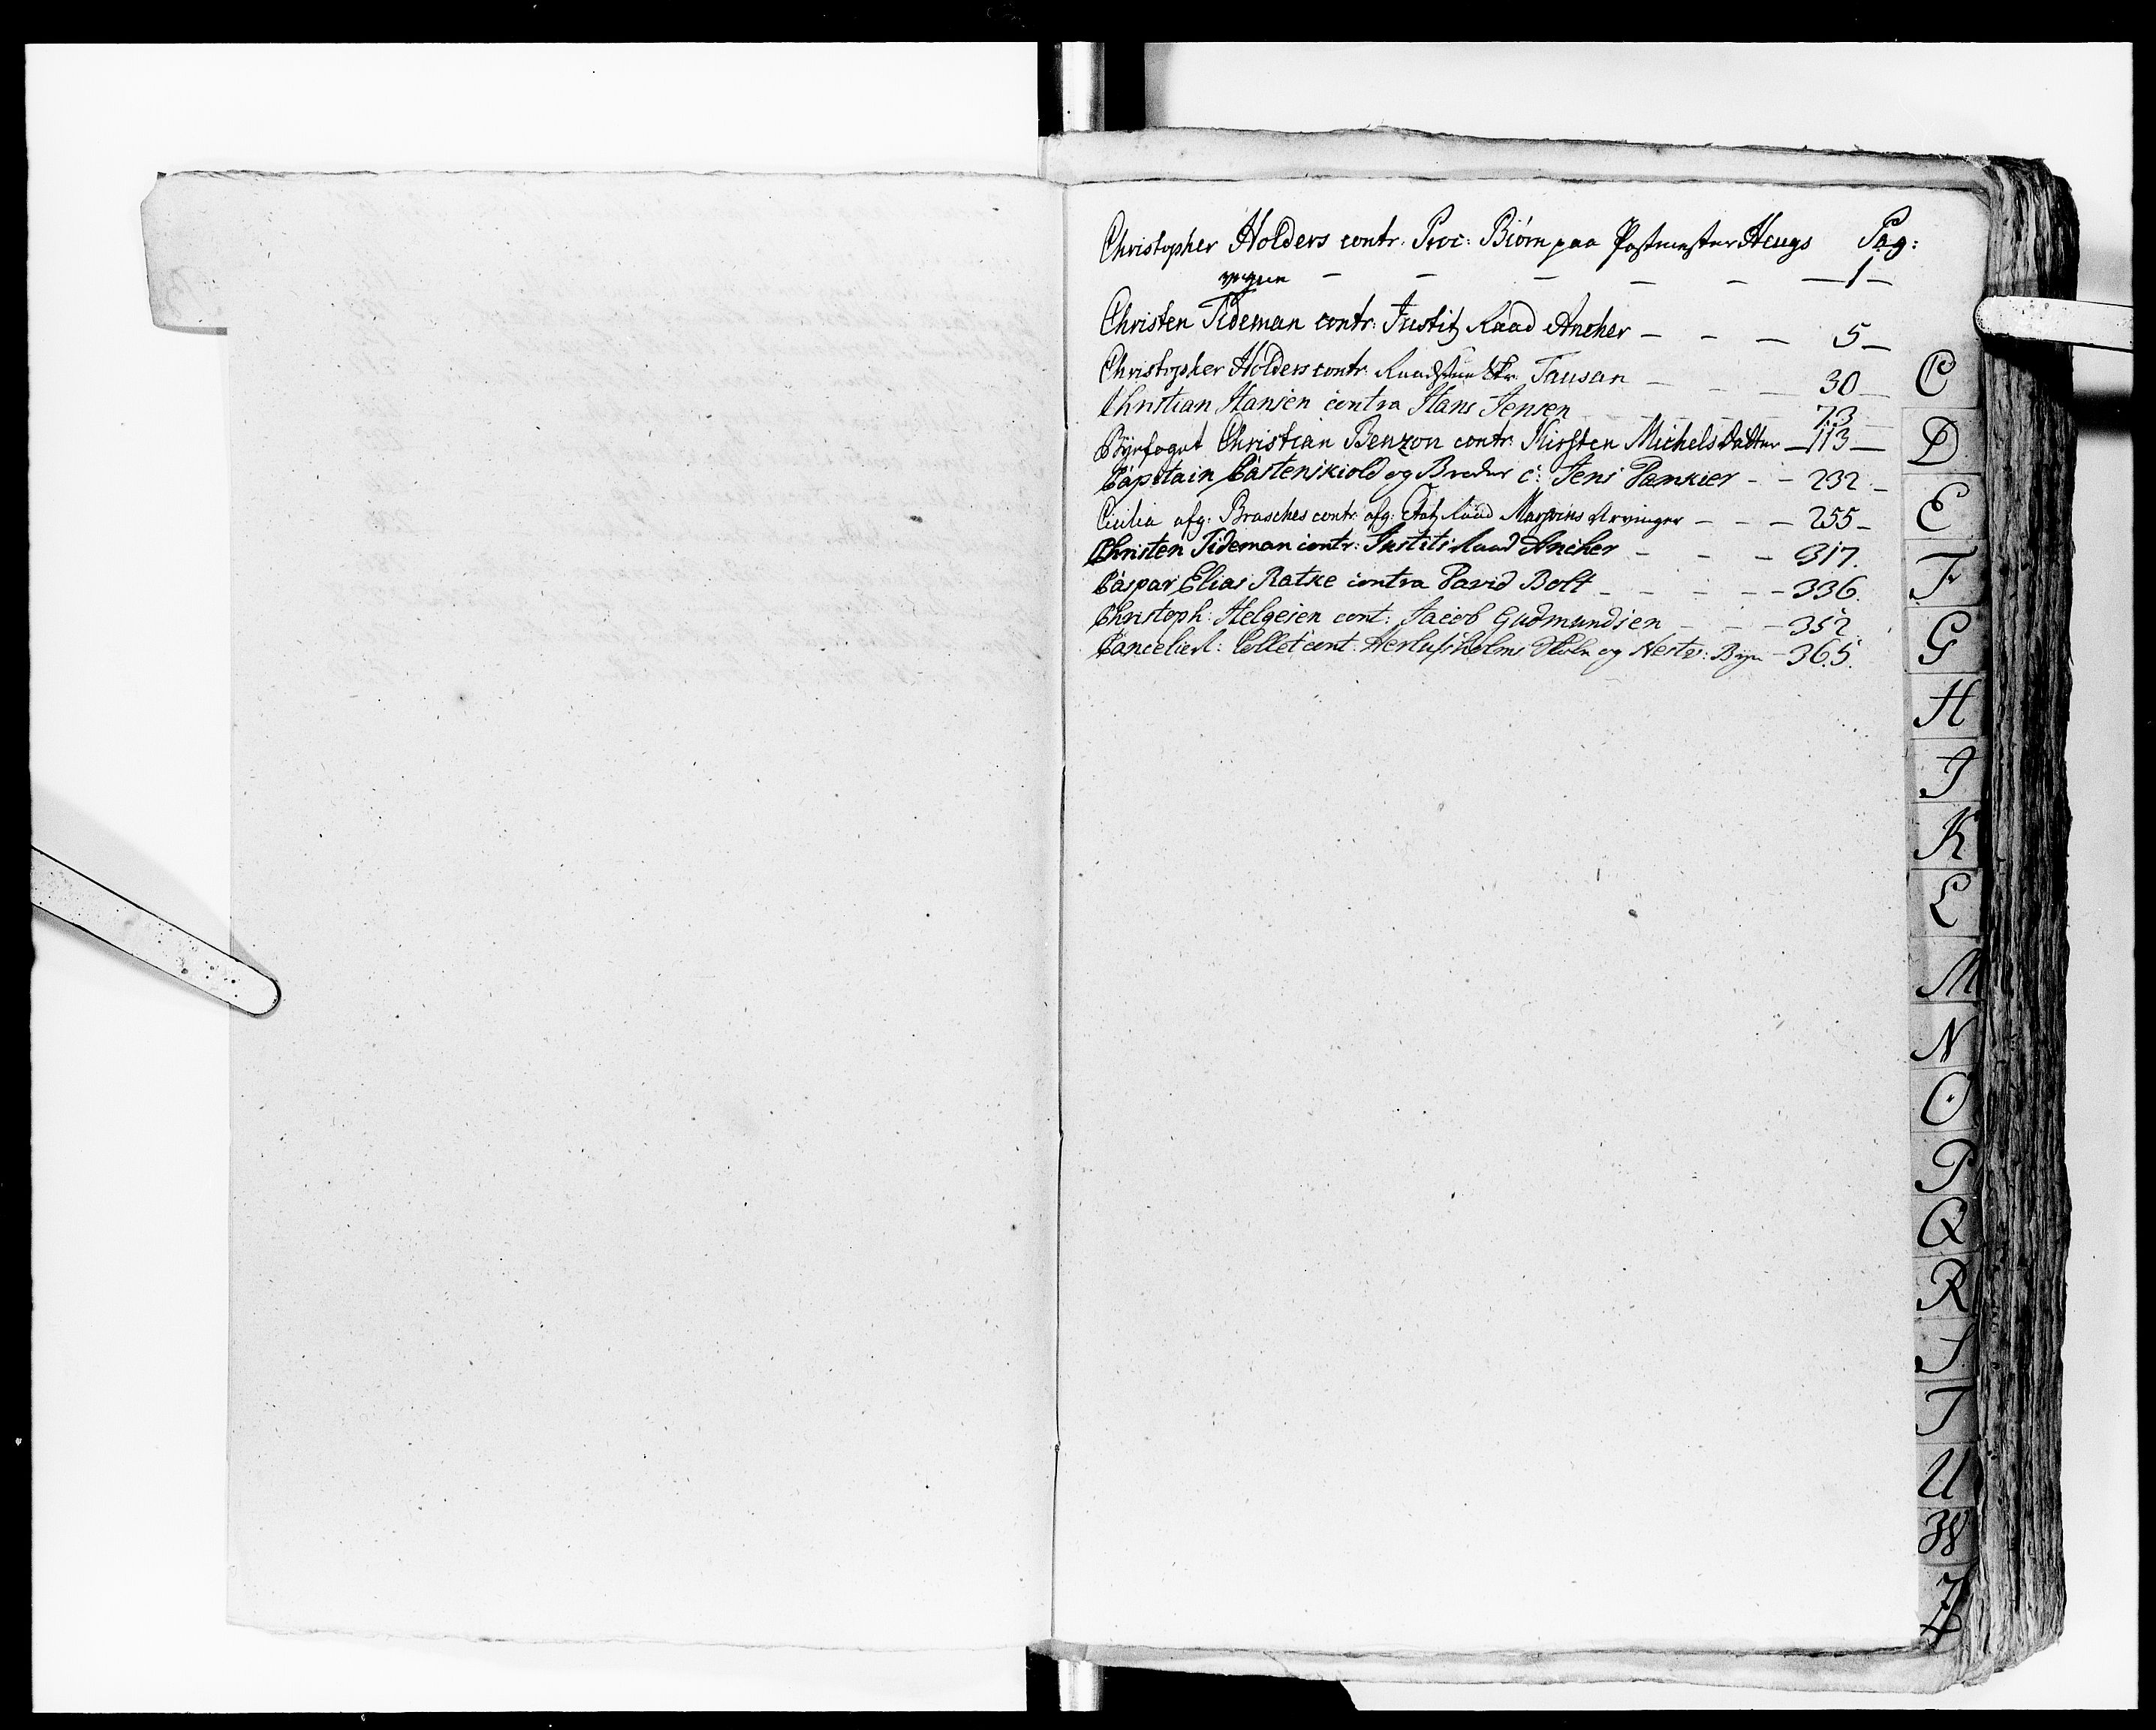 Christopher Holders contr. Proc: Biörn paa Postmester Heugs Pag:
vegne – – – – – 1 –
Christen Tideman contr: Justitz Raad Ancher – – – 5 –
Christopher Holders contr. Tausan – – – 30 –
Christian Hansen contra Hans Jensen – – – 73 –
Byefoget Christian Benzon contr: Kirsten Michels datter – 113 –
Capitain Castenskiold og Breder c: Jens Damkier – – 232 –
Cicilia afg: Brasches contr. afg: Etatz Raad Arvinger – – – 255 –
Christen Tideman contr: Justits Raad Ancher – – – 317.
Caspar Elias Ratke contra David Bolt – – – – – 336.
Christoph: Helgesen cont: Jacob Gudmundsen – – – 352.
Cancelier: Collet cont: Herlufsholms Skole og Nestv: Bye – 365.
C
D
E
F
G
H
I
K
L
M
N
O
P
Q
R
S
T
U
W
Z